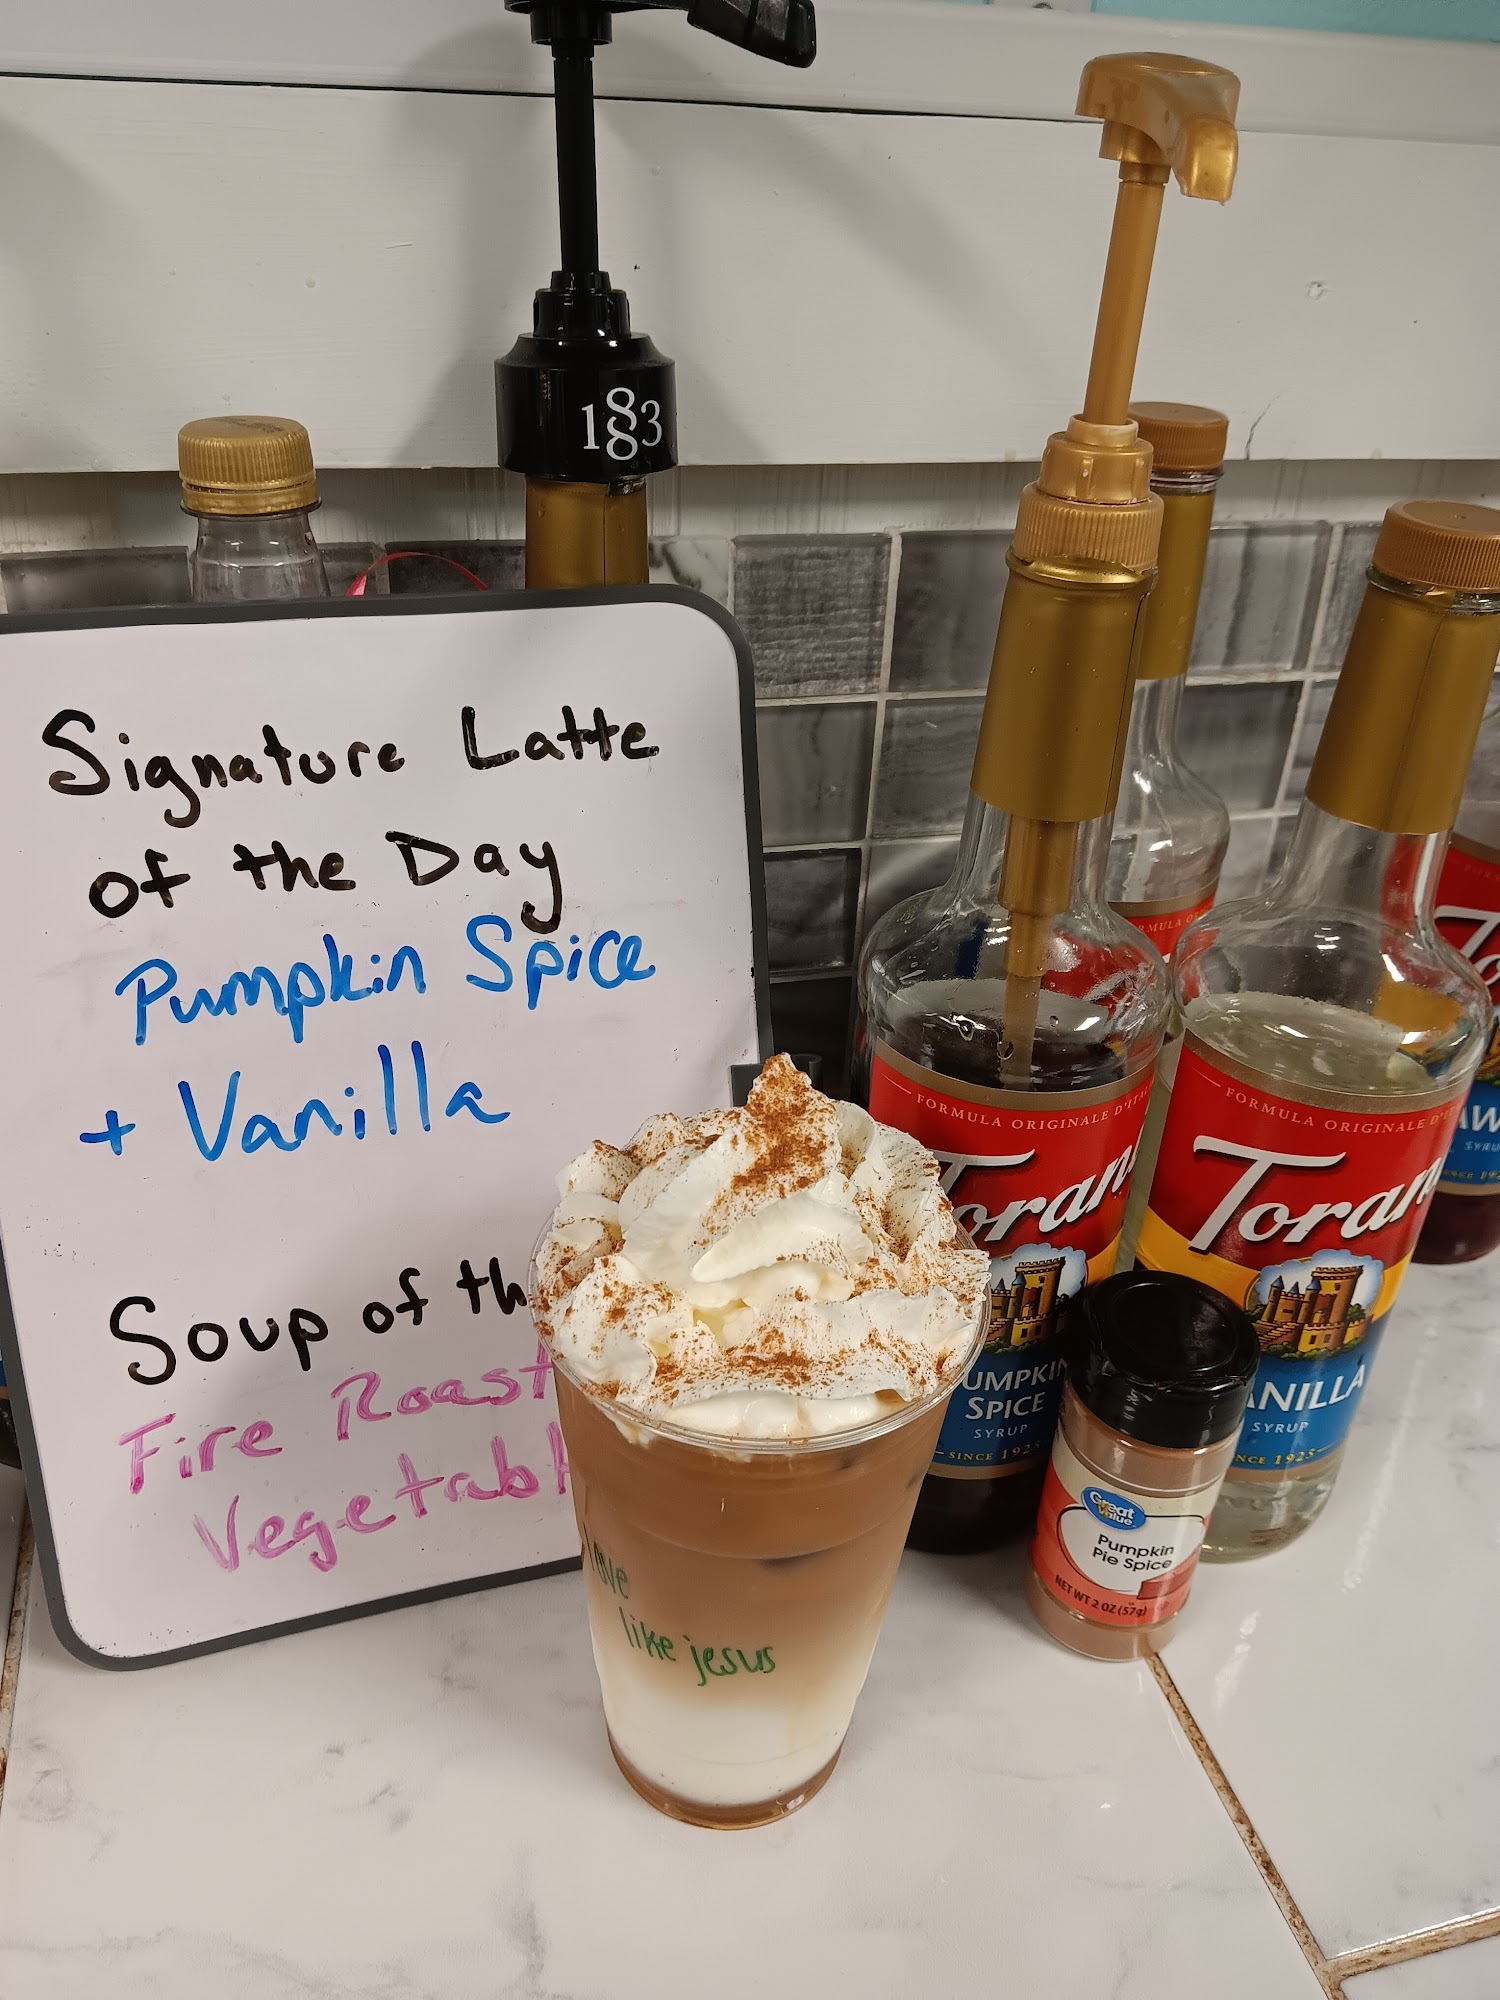 1883
Signature Latte
of the Day
Pumpkin Spice
+ Vanilla
Soup of th
Fire Roast
Vegetabl
love
like jesus
FORMULA ORIGINALE D'ITA
Torani
PUMPKIN
SPICE
SYRUP
SINCE 1925
FORMULA ORIGINALE D'IT
Torani
VANILLA
SYRUP
SINCE 1925
Great
Value
Pumpkin
Pie Spice
NET WT 2 OZ (57g)